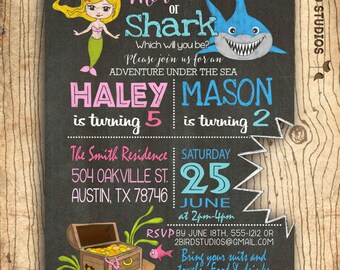 or
Shark
Which will you be?
Please join us for an
ADVENTURE UNDER THE SEA
HALEY
is turning 5
MASON
is turning 2
The Smith Residence
504 OAKVILLE ST.
AUSTIN, TX 78746
SATURDAY
25
JUNE
at 2pm-4pm
RSVP BY JUNE 18TH, 555-1212 OR
2BIRDSTUDIOS@GMAIL.COM
Bring your suits and
STUDIOS